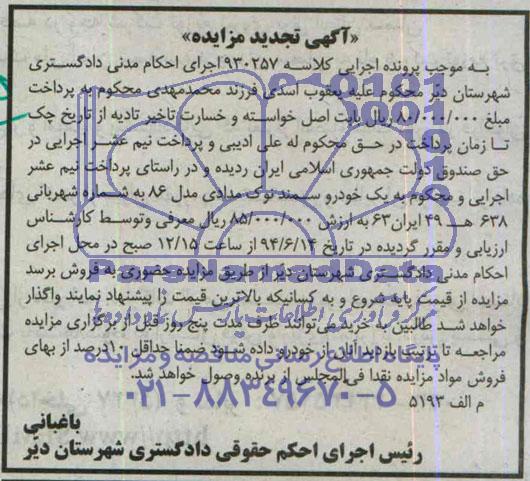 «آگهی تجدید مزایده»
به موجب پرونده اجرایی کلاسه ۹۳۰۲۵۷ اجرای احکام مدنی دادگستری
شهرستان دیّر محکوم علیه یعقوب اسدی فرزند محمدمهدی محکوم به پرداخت
مبلغ ۸۰/۰۰۰/۰۰۰ ریال بابت اصل خواسته و خسارت تاخیر تادیه از تاریخ چک
تا زمان پرداخت در حق محکوم له علی ادیبی و پرداخت نیم عشر اجرایی در
حق صندوق دولت جمهوری اسلامی ایران ردیده و در راستای پرداخت نیم عشر
اجرایی و محکوم به یک خودرو سمند نوک مدادی مدل ۸۶ به شماره شهربانی
۶۳۸ هـ ۴۹ ایران ۶۳ به ارزش ۸۵/۰۰۰/۰۰۰ ریال معرفی وتوسط کارشناس
ارزیابی و مقرر گردیده در تاریخ ۹۴/۶/۱۴ از ساعت ۱۲/۱۵ صبح در محل اجرای
احکام مدنی دادگستری شهرستان دیّر از طریق مزایده حضوری به فروش برسد
مزایده از قیمت پایه شروع و به کسانیکه بالاترین قیمت را پیشنهاد نمایند واگذار
خواهد شد طالبین به خرید می‌توانند ظرف مدت پنج روز قبل از برگزاری مزایده
مراجعه تا ترتیب بازدید آنان از خودرو داده شود ضمنا حداقل ۱۰درصد از بهای
فروش مواد مزایده نقدا فی‌المجلس از برنده وصول خواهد شد.
م الف ۵۱۹۳
باغبانی
رئیس اجرای احکم حقوقی دادگستری شهرستان دیّر
ParsNamadData
پایگاه اطلاع رسانی مناقصه و مزایده
۰۲۱-۸۸۳۴۹۶۷۰-۵